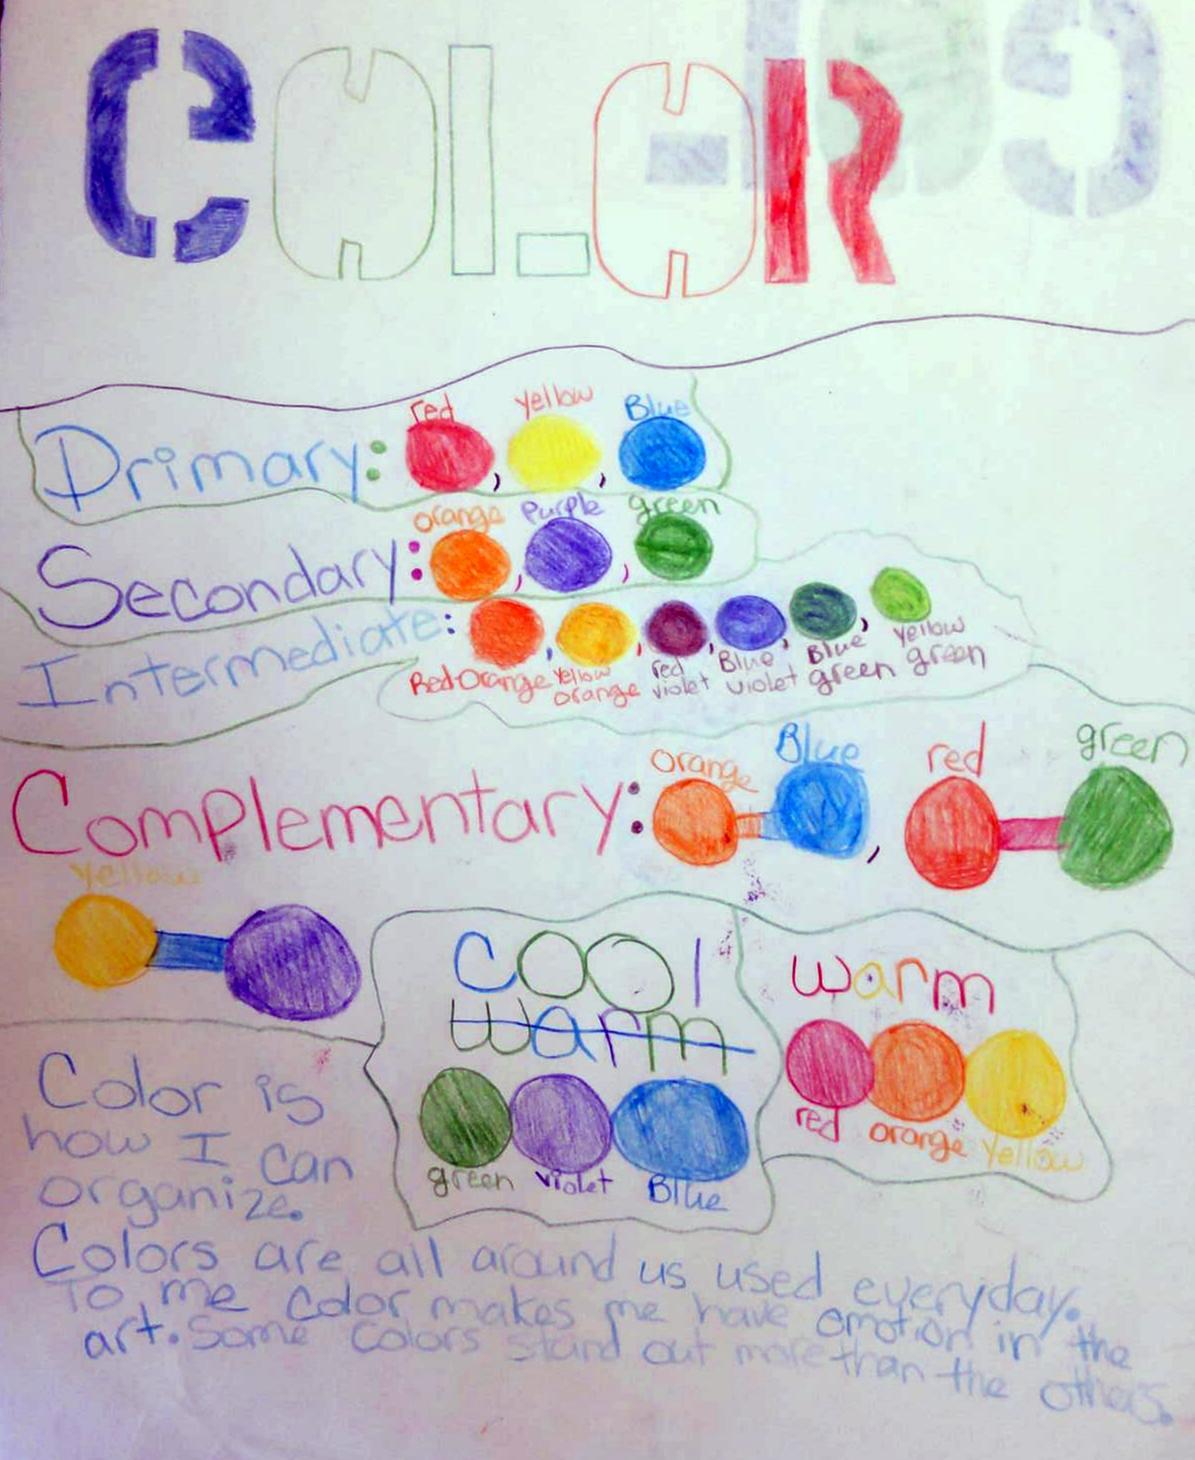 COLOR
red yellow Blue
Primary: , ,
orange Purple green
Secondary: , ,
Intermediate: , , , , ,
Red-Orange Yellow orange red violet Blue violet Blue green yellow green
orange Blue red green
Complementary: ,
yellow
cool
warm
warm
green violet Blue
red orange yellow
Color is
how I can
organize.
Colors are all around us used everyday.
To me color makes me have emotion in the
art. Some colors stand out more than the others.